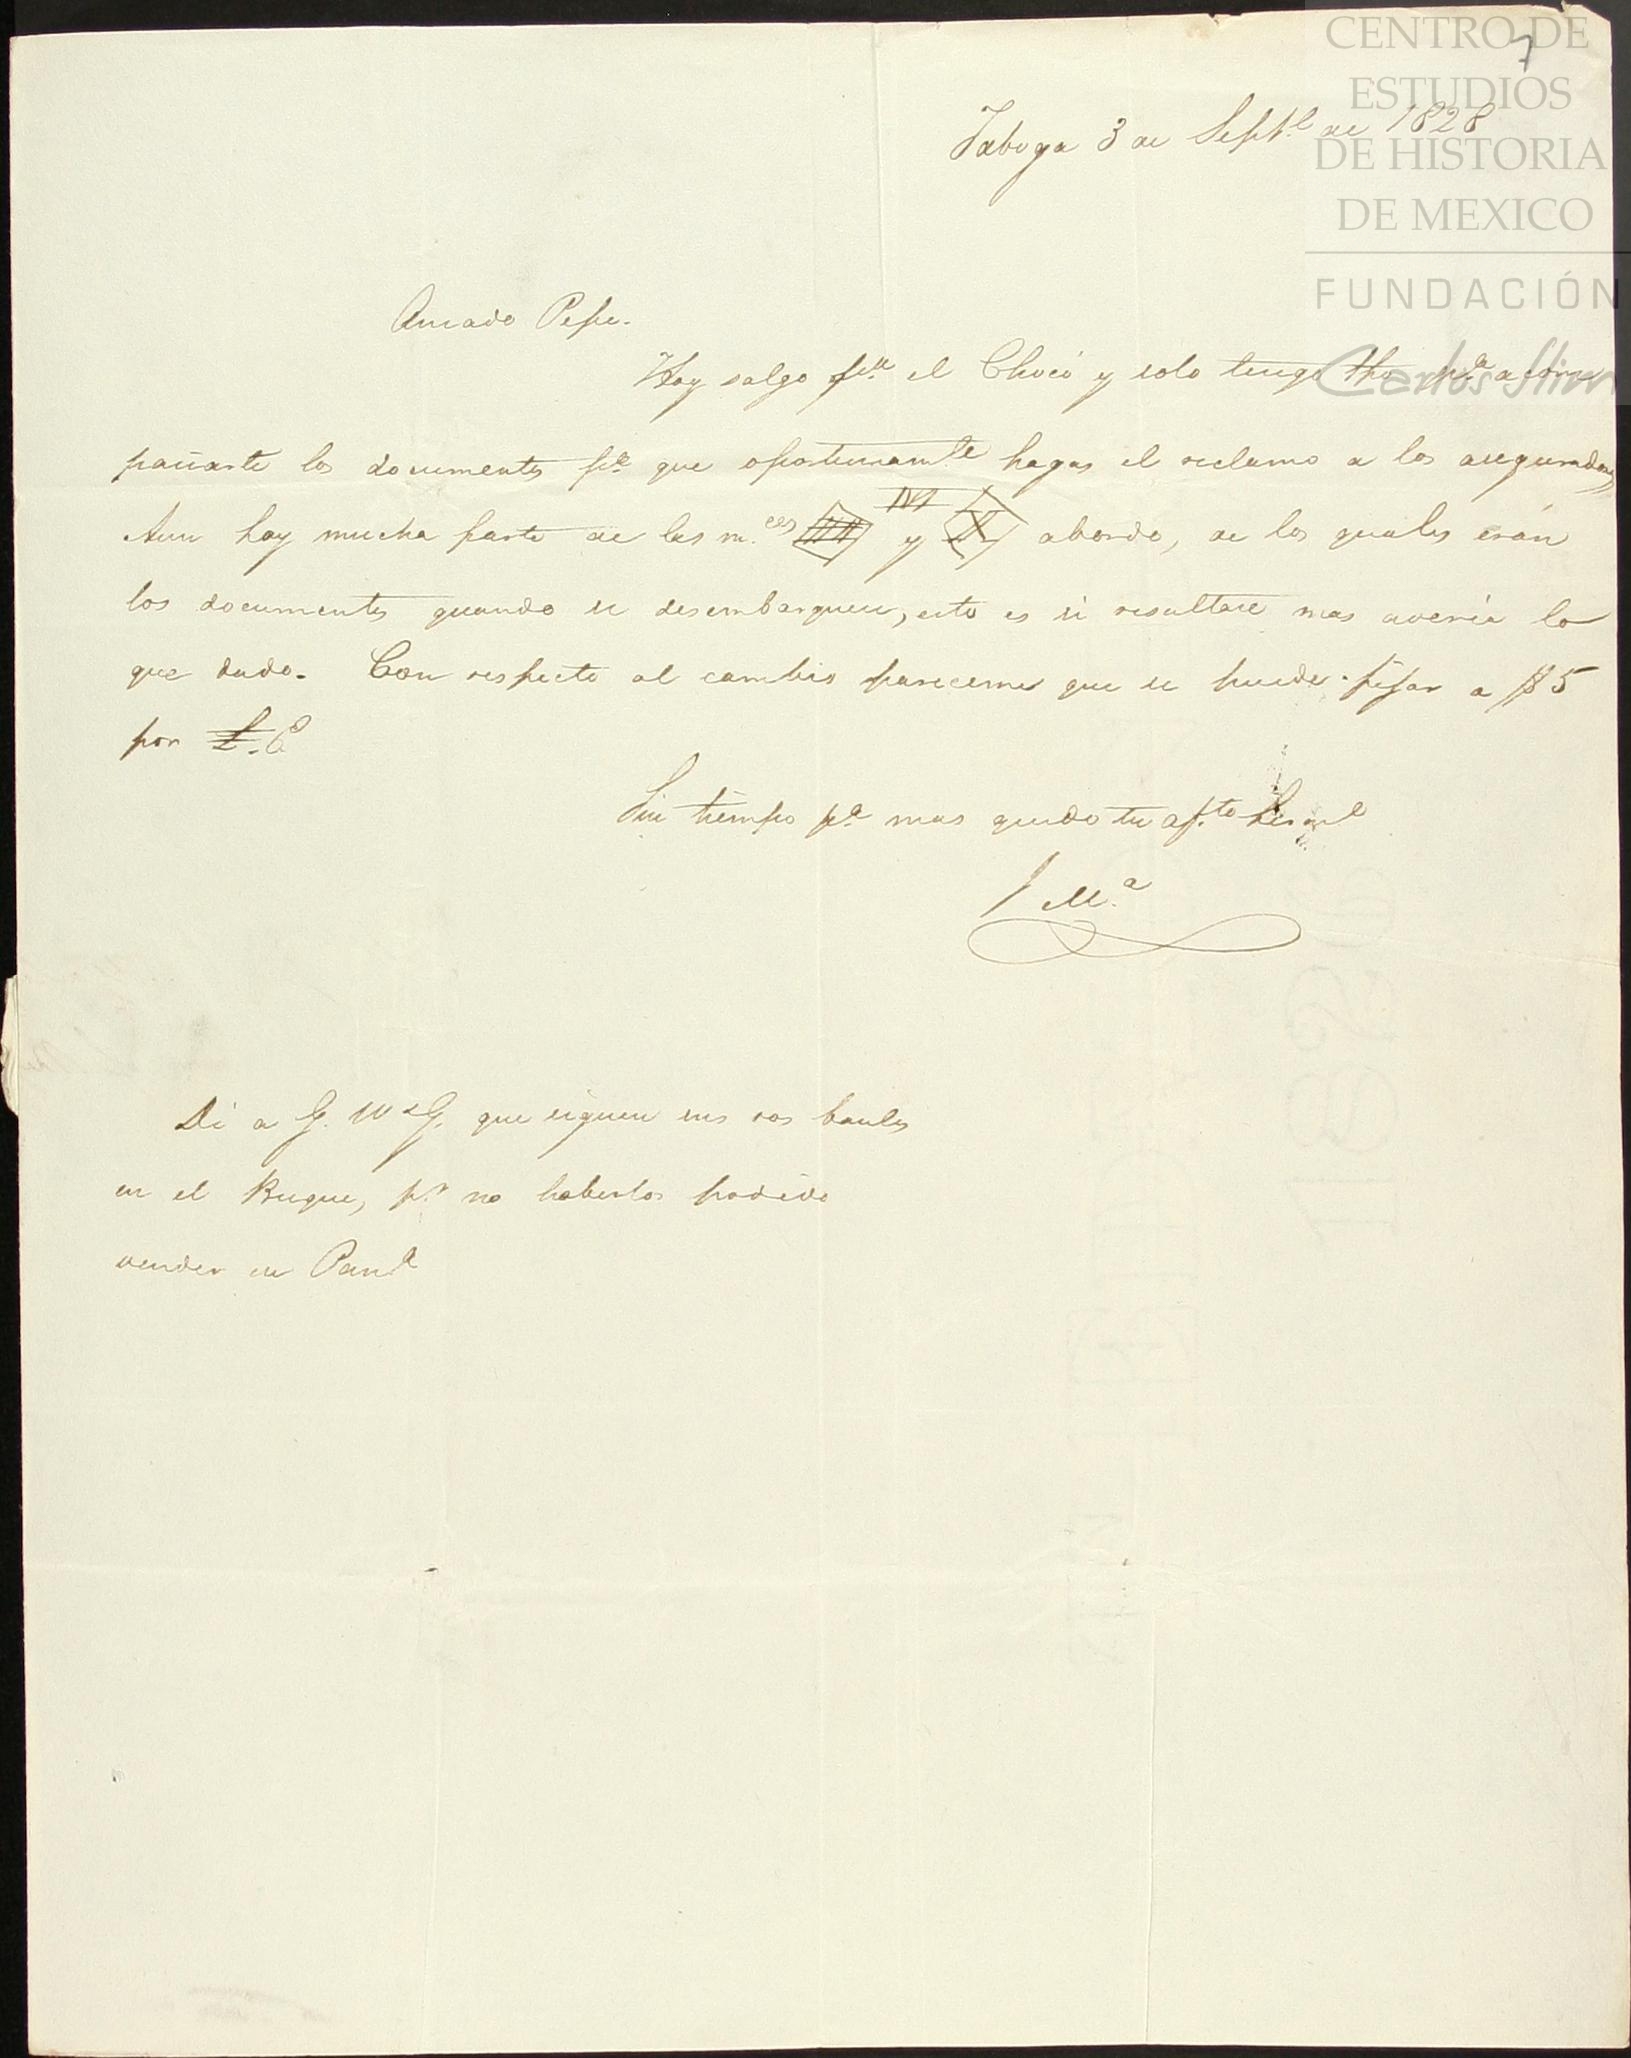 7
CENTRO DE
ESTUDIOS
DE HISTORIA
DE MEXICO
FUNDACIÓN
Carlos Slim
Taboga 3 de Septe. de 1828
Amado Pepe.
Hoy salgo pa. el Chocó y solo tengo tpo pa. acom
pañarte los documentos pa. que oportunamte. hagas el reclamo a los aseguradores
Aun hay mucha parte de las m.ces y abordo, de los quales irán
los documentos quando se desembarquen, esto es si resultare mas avería lo
que dudo. Con respecto al cambio pareceme que se puede fijar a $5
por £.
Sin tiempo pa. mas quedo tu afto.
J Ma.
Di a G. W & G. que siguen sus dos baules
en el Buque, pr. no haberlos podido
vender en Pana